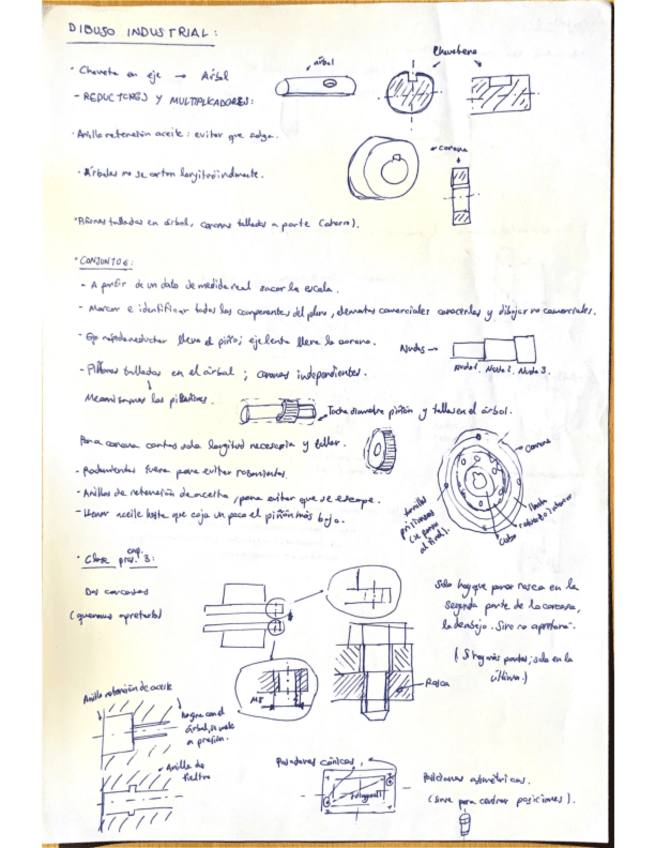 DIBUJO INDUSTRIAL:
árbol
Chavetero
· Chaveta en eje → Árbol
- REDUCTORES Y MULTIPLICADORES:
· Anillo retención aceite: evitar que salga.
corona
· Árboles no se cortan longitudinalmente.
· Piñones tallados en árbol, coronas talladas a parte (ahorro).
· CONJUNTO 6:
- A partir de un dato de medida real sacar la escala.
- Marcar e identificar todos los componentes del plano, elementos comerciales conocerlos y dibujar no comerciales.
- Eje rápido reductor lleva el piñón; eje lento lleva la corona.
Nudos →
Nudo 1. Nudo 2. Nudo 3.
- Piñones tallados en el árbol; coronas independientes.
Mecanizamos los piñones.
Tocho diametro piñón y tallas en el árbol.
Para corona cortas sola longitud necesaria y taller.
corona
- Rodamientos fuera para evitar rozamientos.
- Anillos de retención de aceite, para evitar que se escape.
- Llenar aceite hasta que coja un poco el piñón más bajo.
tornillo prisionero
(se ponen al final).
llanta
interior
cubo
· Clase 3:
cap.
Dos carcasas
(queremos apretarlas)
Solo hay que poner rosca en la
segunda parte de la carcasa,
la de abajo. Si no no aprietará.
(Si hay más partes; solo en la
última.)
M8
Rosca
Anillo retención de aceite
árbol, se mete
a presión.
Anillo de
fieltro
Pasadores cónicos,
Posiciones asimétricas.
(sirve para centrar posiciones).